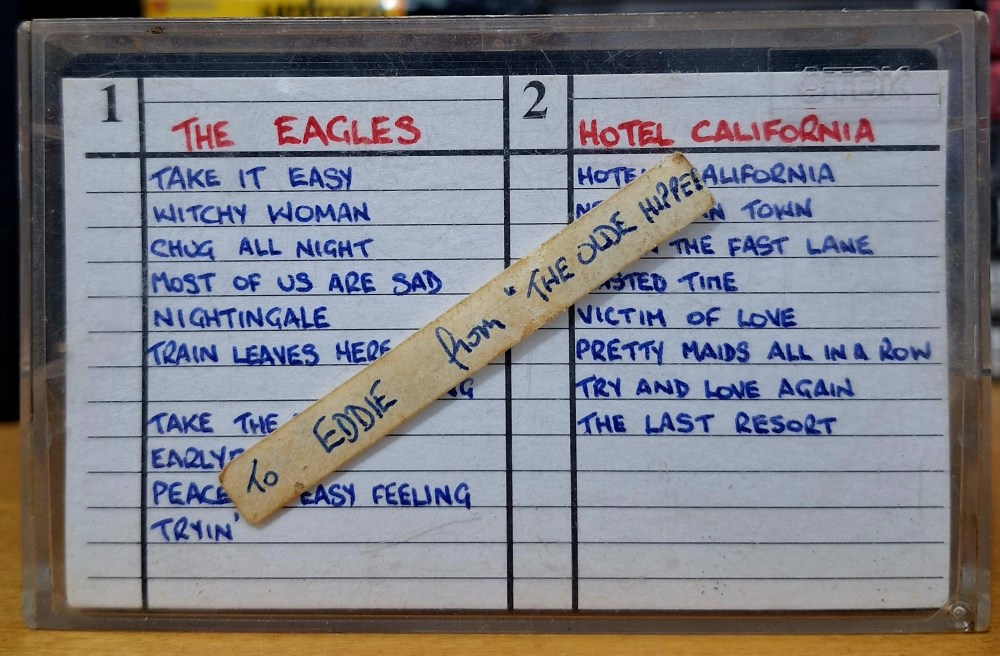 1
THE EAGLES
TAKE IT EASY
WITCHY WOMAN
CHUG ALL NIGHT
MOST OF US ARE SAD
NIGHTINGALE
TRAIN LEAVES HERE
TAKE THE
PEACE EASY FEELING
TRYIN'
2
HOTEL CALIFORNIA
ALIFORNIA
TOWN
THE FAST LANE
TIME
VICTIM OF LOVE
PRETTY MAIDS ALL IN A ROW
TRY AND LOVE AGAIN
THE LAST RESORT
To EDDIE from "THE OLDE HIPPE
TDK